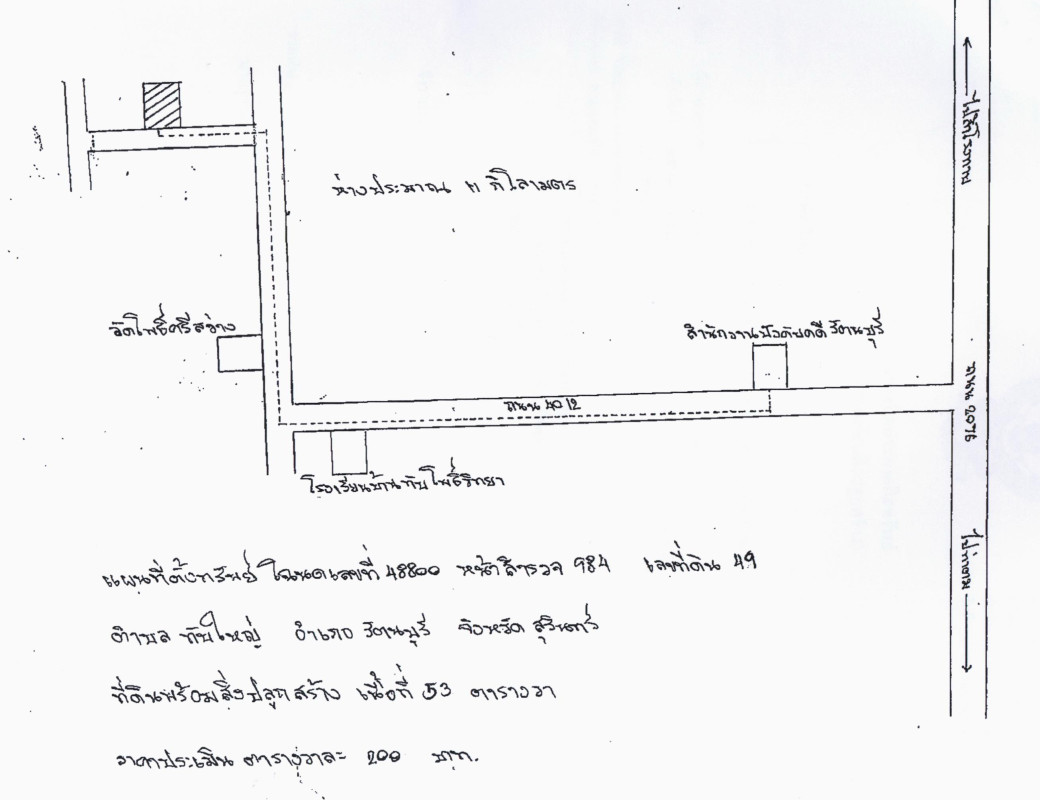 ไปสำโรงทาบ
ห่างประมาณ ๓ กิโลเมตร
วัดโพธิ์ศรีสว่าง
สำนักงานบังคับคดี รัตนบุรี
ถนน 4012
ถนน 2076
โรงเรียนบ้านทับโพธิ์วิทยา
ไปท่าตูม
แผนที่ตั้งทรัพย์ โฉนดเลขที่ 48800 หน้าสำรวจ 984 เลขที่ดิน 49
ตำบล ทับใหญ่ อำเภอ รัตนบุรี จังหวัด สุรินทร์
ที่ดินพร้อมสิ่งปลูกสร้าง เนื้อที่ 53 ตารางวา
ราคาประเมิน ตารางวาละ 200 บาท.